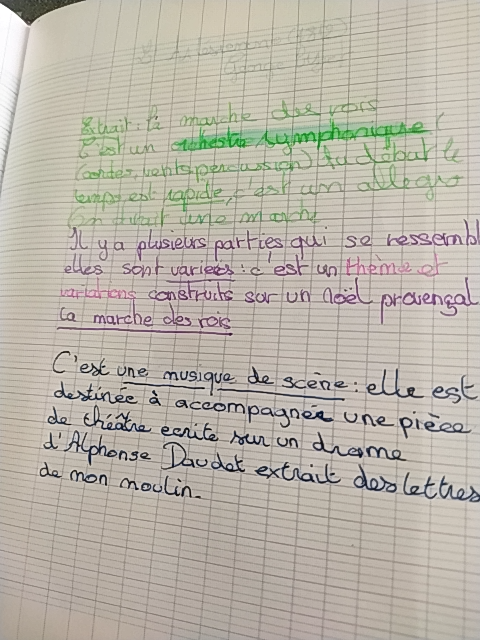 L'Arlésienne
Extrait : la marche des rois
C'est un orchestre symphonique (
cordes, vents, percussion) Au début le
temps est rapide, c'est un allegro
On dirait une marche
Il y a plusieurs parties qui se ressembl
elles sont variees : c'est un thème et
variations construits sur un noël provençal
La marche des rois
C'est une musique de scène : elle est
destinée à accompagnée une pièce
de théâtre ecrite sur un drame
d'Alphonse Daudet extrait des lettres
de mon moulin.